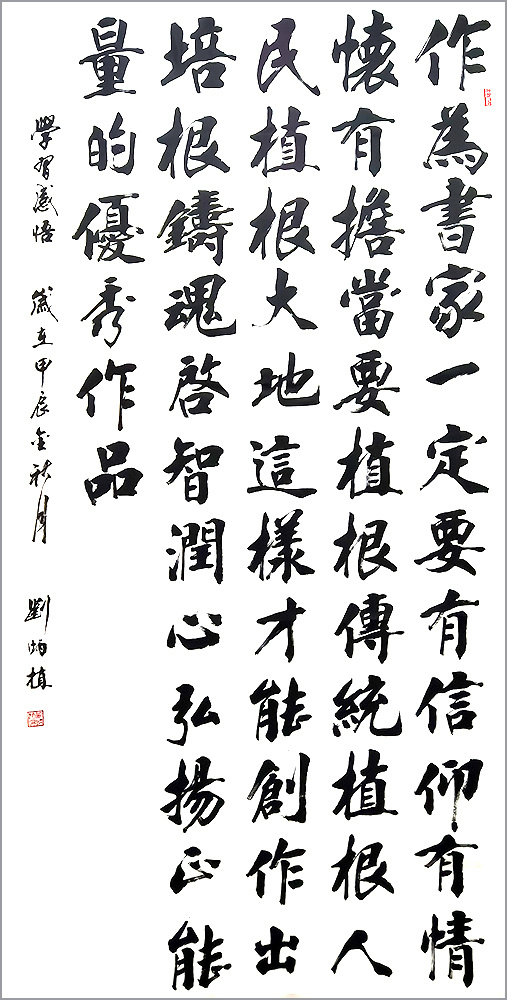 作為書家一定要有信仰有情
懷有擔當要植根傳統植根人
民植根大地這樣才能創作出
培根鑄魂啓智潤心弘揚正能
量的優秀作品
學習感悟 歲在甲辰金秋月 劉炳植